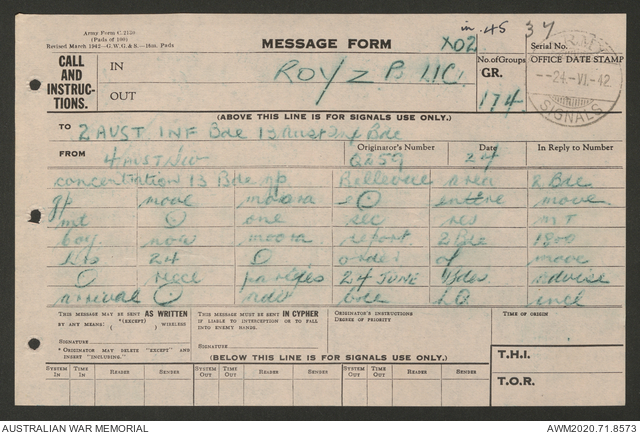 Army Form C.2130
(Pads of 100)
Revised March 1942—G.W.G.&S.—Hon. Pads
MESSAGE FORM
in 45 37
X02
Serial No.
CALL AND INSTRUCTIONS.
IN
ROY Z B
No. of Groups
GR.
174
OFFICE DATE STAMP
ARMY SIGNALS
24.VI.42
OUT
(ABOVE THIS LINE IS FOR SIGNALS USE ONLY.)
TO 2 AUST INF Bde 13 Aust Inf Bde
FROM 4 AUST DIV
Originator's Number G259
Date 24
In Reply to Number
concentration 13 Bde gp Bellevue area 2 Bde
gp move moora entire move
mt one sec res MT
coy now moora report 2 Bde 1800
hrs 24 order of move
recce parties 24 JUNE Bdes advise
arrival adv bde HQ incl
THIS MESSAGE MAY BE SENT AS WRITTEN BY ANY MEANS: (*EXCEPT) ( ) WIRELESS
SIGNATURE
* ORIGINATOR MAY DELETE "EXCEPT" AND INSERT "INCLUDING."
THIS MESSAGE MUST BE SENT IN CYPHER IF LIABLE TO INTERCEPTION OR TO FALL INTO ENEMY HANDS.
SIGNATURE
ORIGINATOR'S INSTRUCTIONS
DEGREE OF PRIORITY
TIME OF ORIGIN
(BELOW THIS LINE IS FOR SIGNALS USE ONLY.)
T.H.I.
T.O.R.
SYSTEM IN TIME IN READER SENDER SYSTEM OUT TIME OUT READER SENDER SYSTEM OUT TIME OUT READER SENDER
AUSTRALIAN WAR MEMORIAL
AWM2020.71.8573